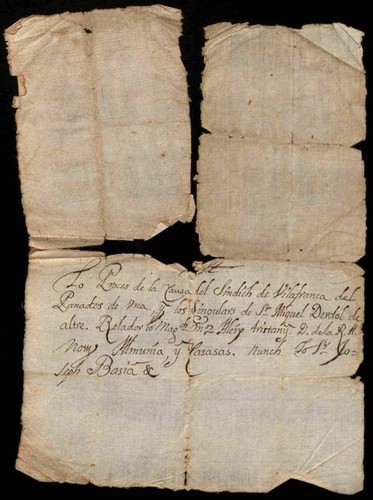 Lo Proces de la Causa del Sindich de Vilafranca del
Panades de una, y los Singulars de St. Miquel Derdol de
altre. Relador lo Magch. D. de la R. A.
Noy Almunia y Casasas. Nunch Jo Sr. Jo-
seph Basia &